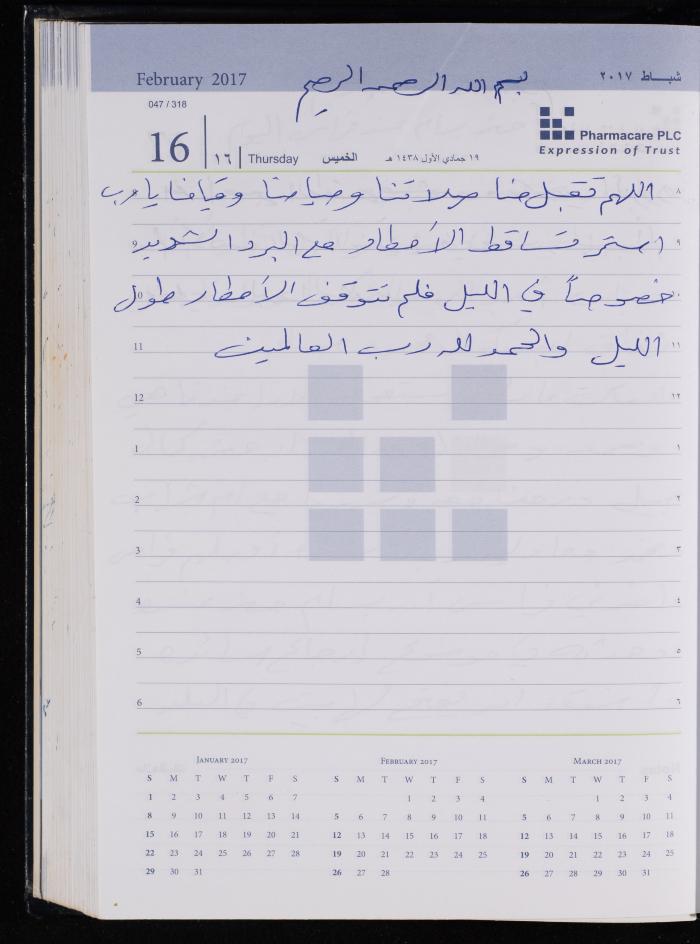 February 2017
شبـــاط ٢٠١٧
بسم الله الرحمن الرحيم
047 / 318
16
١٦
Thursday
الخميس
١٩ جمادي الأول ١٤٣٨ هـ
Pharmacare PLC
Expression of Trust
اللهم تقبل منا صلاتنا وصيامنا وقيامنا يا رب ٨
استمر تساقط الأمطار مع البرد الشديد ٩
خصوصاً في الليل فلم تتوقف الأمطار طول
11 الليل والحمد لله رب العالمين ١١
12 ١٢
1 ١
2 ٢
3 ٣
4 ٤
5 ٥
6 ٦
JANUARY 2017
S M T W T F S
1 2 3 4 5 6 7
8 9 10 11 12 13 14
15 16 17 18 19 20 21
22 23 24 25 26 27 28
29 30 31
FEBRUARY 2017
S M T W T F S
1 2 3 4
5 6 7 8 9 10 11
12 13 14 15 16 17 18
19 20 21 22 23 24 25
26 27 28
MARCH 2017
S M T W T F S
1 2 3 4
5 6 7 8 9 10 11
12 13 14 15 16 17 18
19 20 21 22 23 24 25
26 27 28 29 30 31